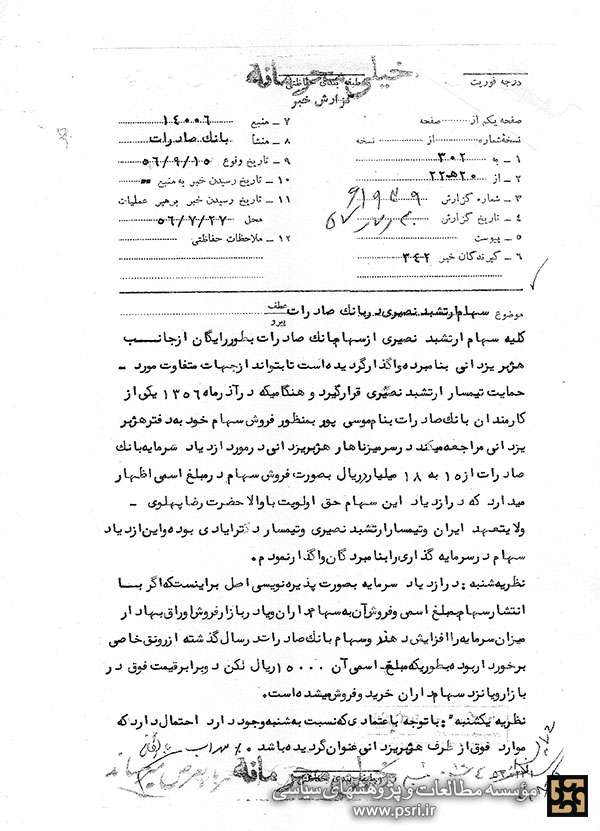 خیلی محرمانه
درجه فوریت
طبقه بندی حفاظتی
گزارش خبر
صفحه یکم از صفحه
نسخه شماره از نسخه
۱ ـ به ۳۰۲
۲ ـ از ۲۲ه۲۰
۳ ـ شماره گزارش
۴ ـ تاریخ گزارش
۵ ـ پیوست
۶ ـ گیرندگان خبر ۳۴۲
۷ ـ منبع ۱۴۰۰۶
۸ ـ منشأ بانک صادرات
۹ ـ تاریخ وقوع ۵۶/۹/۱۵
۱۰ ـ تاریخ رسیدن خبر به منبع "
۱۱ ـ تاریخ رسیدن خبر برهبر عملیات
محل ۵۶/۷/۲۷
۱۲ ـ ملاحظات حفاظتی
موضوع سهام ارتشبد نصیری در بانک صادرات عطف
پیرو
کلیه سهام ارتشبد نصیری از سهام بانک صادرات بطور رایگان از جانب
هژبر یزدانی بنامبرده واگذار گردیده است تا بتواند از جهات متفاوت مورد ـ
حمایت تیمسار ارتشبد نصیری قرار گیرد و هنگامیکه در آذر ماه ۱۳۵۶ یکی از
کارمندان بانک صادرات بنام موسی پور بمنظور فروش سهام خود به دفتر هژبر
یزدانی مراجعه میکند در سر میز ناهار هژبر یزدانی در مورد ازدیاد سرمایه بانک
صادرات از ۱۵ به ۱۸ میلیارد ریال بصورت فروش سهام در مبلغ اسمی اظهار
میدارد که در ازدیاد این سهام حق اولویت با والا حضرت رضا پهلوی ـ
ولایتعهد ایران و تیمسار ارتشبد نصیری و تیمسار دکتر ایادی بوده و این ازدیاد
سهام در سرمایه گذاری را بنامبردگان واگذار نمودم.
نظریه شنبه : در ازدیاد سرمایه بصورت پذیره نویسی اصل بر اینست که اگر بـا
انتشار سهام مبلغ اسمی و فروش آن به سهامداران و یا در بازار فروش اوراق بهادار
میزان سرمایه را افزایش دهند و سهام بانک صادرات در سال گذشته از رونق خاصی
برخوردار بوده بطوریکه مبلغ اسمی آن ۱۵۰۰۰ ریال لکن دو برابر قیمت فوق در
بازار و یا نزد سهامداران خرید و فروش میشده است.
نظریه یکشنبه : با توجه باعتمادی که نسبت به شنبه وجود دارد احتمال دارد که
موارد فوق از طرف هژبر یزدانی عنوان گردیده باشد ٪
طبقه بندی حفاظتی
خیلی محرمانه
مؤسسه مطالعات و پژوهشهای سیاسی
www.psri.ir